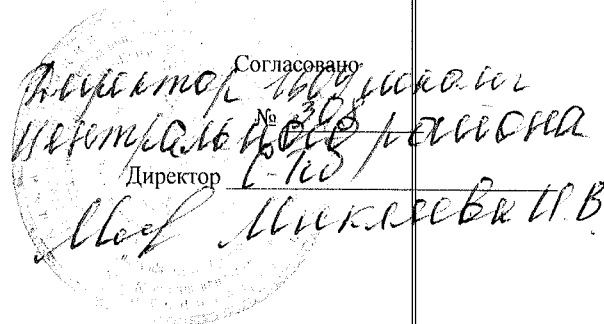 Согласовано
Директор ГБОУ школы
№ 308
Центрального района
С-Пб
Директор
Микляева И.В